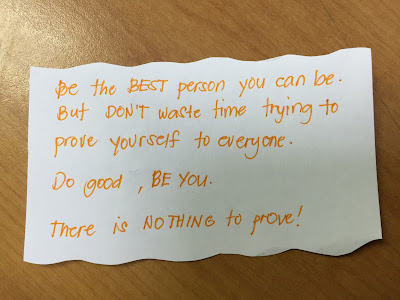 Be the BEST person you can be.
But DON'T waste time trying to
prove yourself to everyone.
Do good, BE YOU.
There is NOTHING to prove!